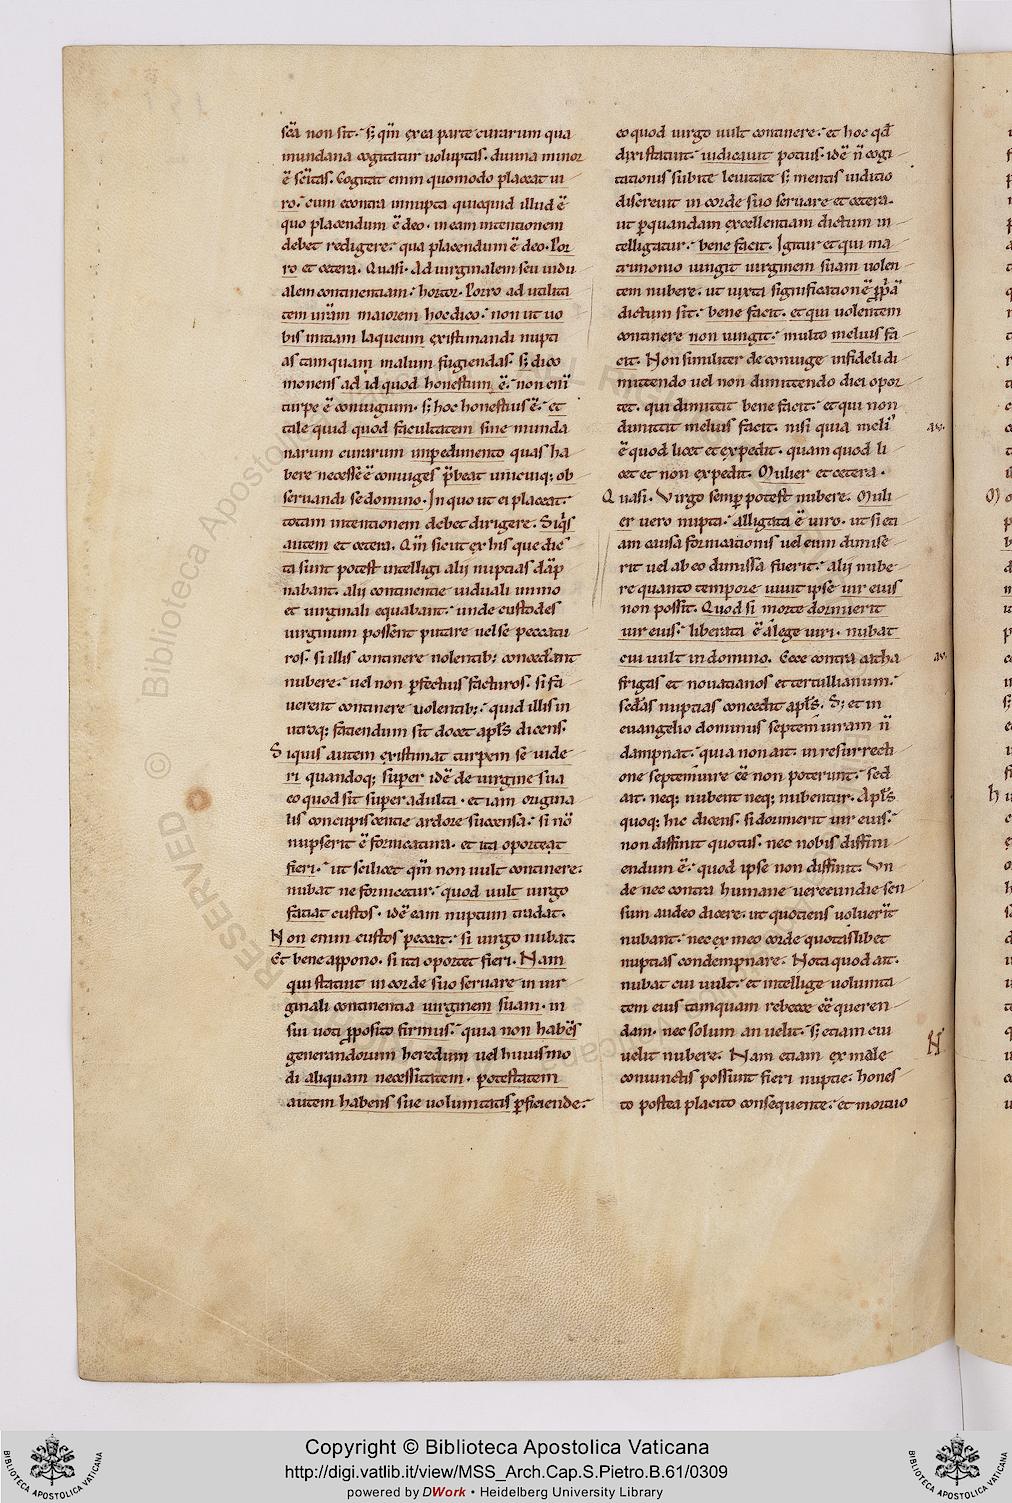 sc̄a non sit. s; qm̄ ex ea parte curarum qua
mundana cogitatur uoluptas. diuina minor
ē sc̄itas. Cogitat enim quomodo placeat ui
ro. cum econtra innupta quicquid illud ē
quo placendum ē deo. in eam intentionem
debet redigere. qua placendum ē deo. Por
ro et cetera. Quasi. Ad uirginalem seu uidu
alem continentiam. hortor. Porro ad utilita
tem ur̄am maiorem hoc dico. non ut uo
bis iniciam laqueum existimandi nupti
as tamquam malum fugiendas. s; dico
monens ad id quod honestum ē. non eni
turpe ē coniugium. s; hoc honestius ē. et
tale quid quod facultatem sine munda
narum curarum impedimento quas ha
bere necesse ē coniuges p̄beat unicuiq; ob
seruandi se domino. In quo ut ei placeat.
totam intentionem debet dirigere. Siq̄s
autem et cetera. Qm̄ sicut ex his que dic
ta sunt potest intelligi alii nuptias dāp
nabant. alii continentie uiduali immo
et uirginali equabant. unde custodes
uirginum possent putare uel se peccatu
ros. si illis continere nolentib; concederant
nubere. uel non p̄fectius facturos. si fa
uerent continere uolentib; quid illis in
utroq; faciendum sit docet apl̄s dicens.
Siquis autem existimat turpem se uide
ri quandoq; super idē de uirgine sua
eo quod sit super adulta. et iam origina
lis concupiscentie ardore succensa. si nō
nupserit ē fornicatura. et ita oporteat
fieri. ut scilicet qm̄ non uult continere.
nubat ne fornicetur. quod uult uirgo
faciat custos. idē eam nuptum tradat.
Non enim custos peccat. si uirgo nubat.
Et bene appono. si ita oportet fieri. Nam
qui statuit in corde suo seruare in uir
ginali continentia uirginem suam. in
sui uoti p̄posito firmus. quia non habēs
generandorum heredum uel huiusmo
di aliquam necessitatem. potestatem
autem habens sue uoluntatis p̄ficiende.
eo quod uirgo uult continere. et hoc qd̄
dixi statuit. iudicauit potius. idē n̄ cogi
tationis subite leuitate s; mentis iuditio
discreuit in corde suo seruare et cetera.
ut p quandam excellentiam dictum in
telligatur. bene facit. Igitur et qui ma
trimonio iungit uirginem suam uolen
tem nubere. ut iuxta significationē pp̄a
dictum sit. bene facit. et qui uolentem
continere non iungit. multo melius fa
cit. Non similiter de coniuge infideli di
mittendo uel non dimittendo dici opor
tet. qui dimittit bene facit. et qui non
dimittit melius facit. nisi quia meli'
ē quod licet et expedit. quam quod li
cet et non expedit. Mulier et cetera.
Quasi. Virgo semp potest nubere. Muli
er uero nupta. alligata ē uiro. ut si eti
am causa fornicationis uel eum dimise
rit uel ab eo dimissa fuerit. alii nube
re quanto tempore uiuit ipse uir eius
non possit. Quod si morte dormierit
uir eius. liberata ē a lege uiri. nubat
cui uult in domino. Ecce contra catha
frigas et nouatianos et tertullianum.
sed̄as nuptias concedit apl̄s. S; et in
euangelio dominus septem uiram n̄
dampnat. quia non ait. in resurrecti
one septem uire ēē non poterunt. sed
ait. neq; nubent neq; nubentur. Apl̄s
quoq; hic dicens. si dormierit uir eius.
non diffinit quotus. nec nobis diffini
endum ē. quod ipse non diffinit. Vn
de nec contra humane uerecundie sen
sum audeo dicere. ut quotiens uoluerīt
nubant. nec ex meo corde quotaslibet
nuptias condempnare. Nota quod ait.
nubat cui uult. et intellige uolunta
tem eius tamquam rebecce ēē queren
dam. nec solum an uelit. s; etiam cui
uelit nubere. Nam etiam ex male
coniunctis possunt fieri nuptie. hones
to postea placito consequente. et mortuo
Copyright © Biblioteca Apostolica Vaticana
http://digi.vatlib.it/view/MSS_Arch.Cap.S.Pietro.B.61/0309
powered by DWork • Heidelberg University Library